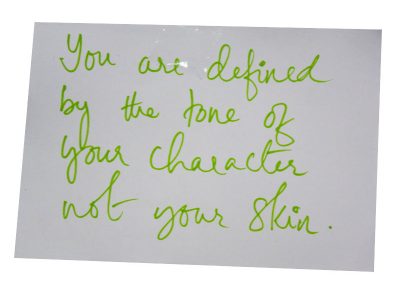 You are defined
by the tone of
your character
not your skin.